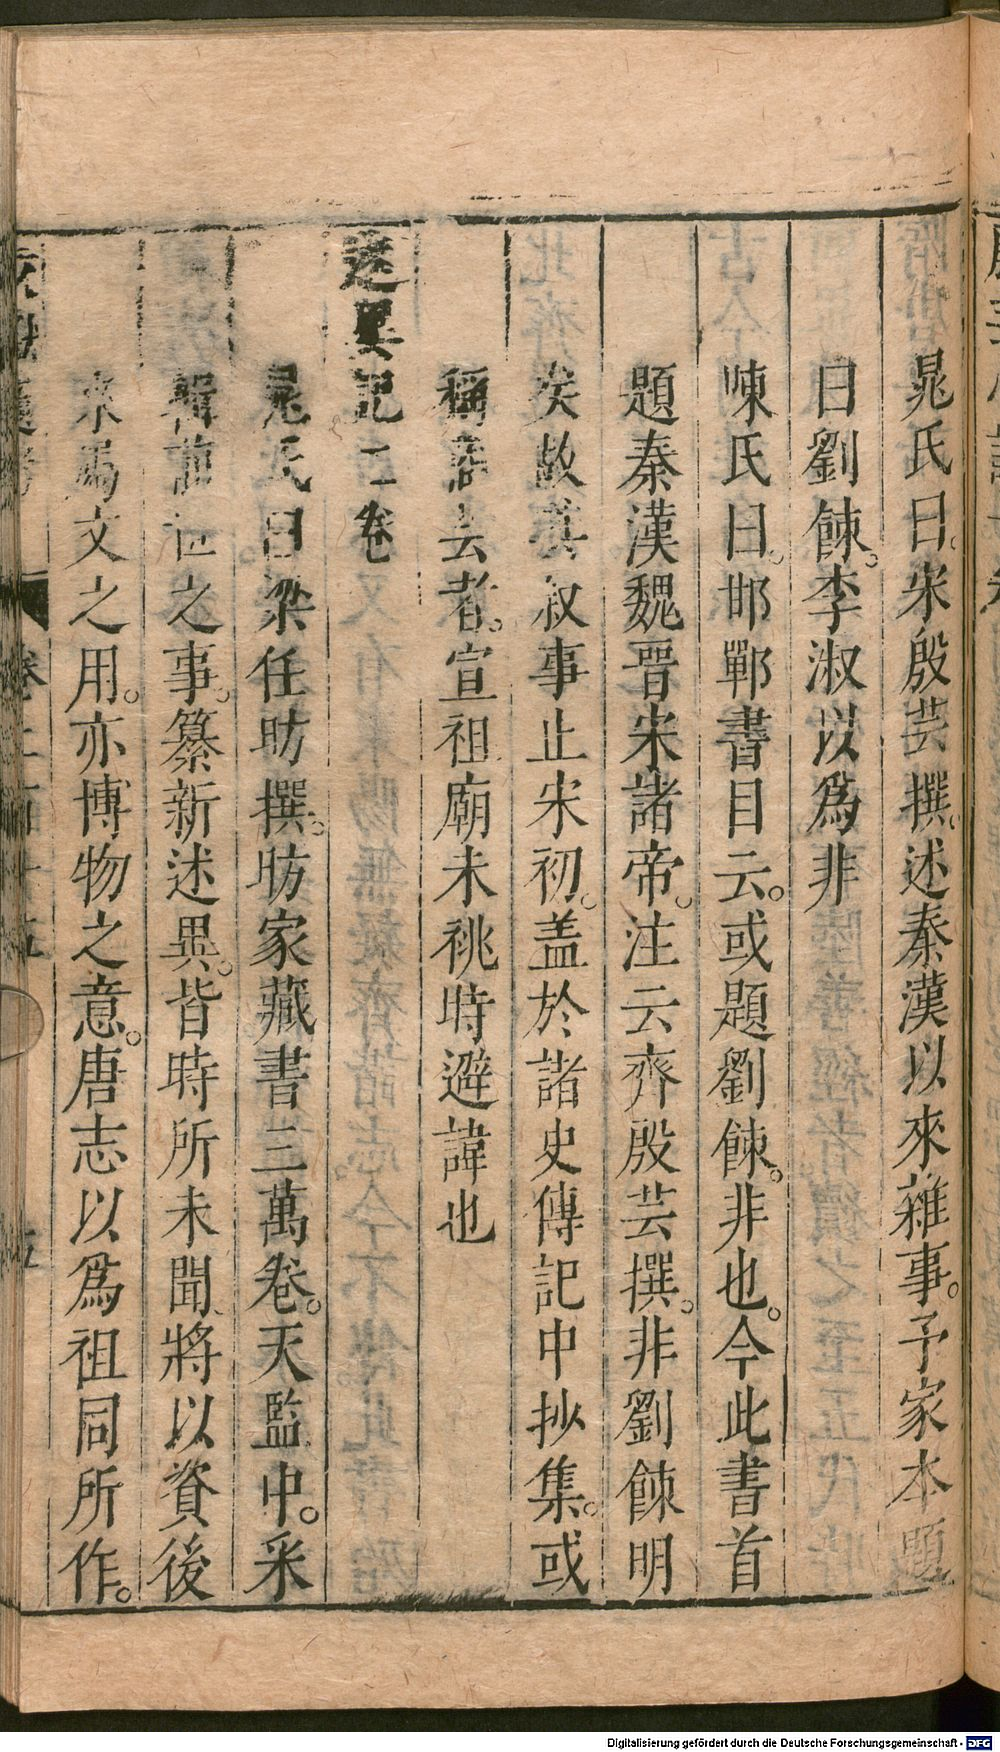 晁氏曰。宋殷芸撰。述秦漢以來雜事。予家本題
曰劉餗。李淑以爲非
陳氏曰。邯鄲書目云。或題劉餗。非也。今此書首
題秦漢魏晉宋諸帝。注云齊殷芸撰。非劉餗明
矣故其叙事止宋初。盖於諸史傳記中抄集。或
稱商芸者。宣祖廟未祧時避諱也
述異記二卷
晁氏曰梁任昉撰。昉家藏書三萬卷。天監中。采
輯前世之事。纂新述異。皆時所未聞將以資後
來屬文之用。亦博物之意。唐志以爲祖同所作。
Digitalisierung gefördert durch die Deutsche Forschungsgemeinschaft - DFG